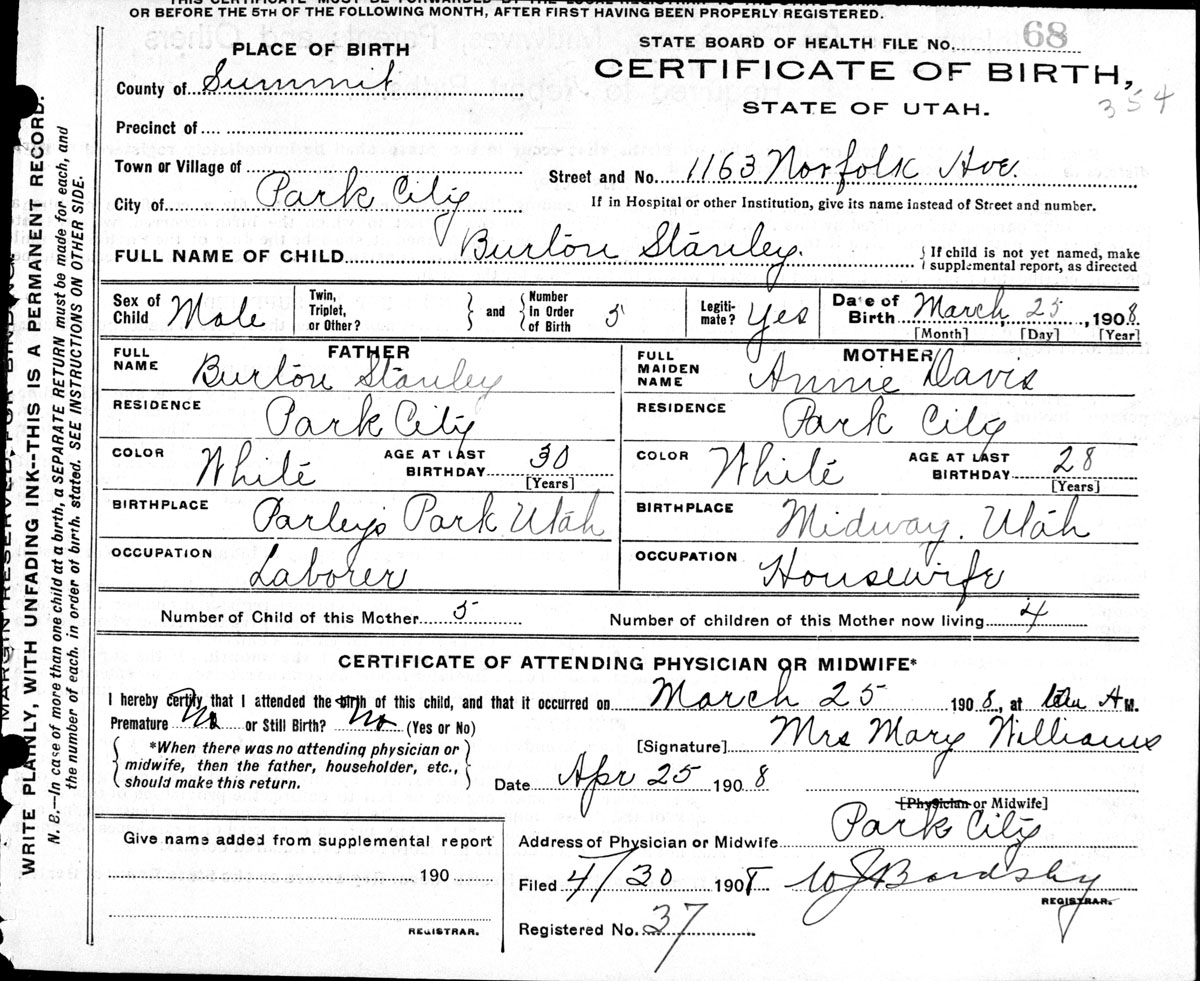 OR BEFORE THE 5TH OF THE FOLLOWING MONTH, AFTER FIRST HAVING BEEN PROPERLY REGISTERED.
STATE BOARD OF HEALTH FILE NO. 68
CERTIFICATE OF BIRTH,
STATE OF UTAH.
354
PLACE OF BIRTH
County of Summit
Precinct of
Town or Village of
City of Park City
Street and No. 1163 Norfolk Ave.
If in Hospital or other Institution, give its name instead of Street and number.
FULL NAME OF CHILD Burton Stanley. { If child is not yet named, make supplemental report, as directed
Sex of Child Male Twin, Triplet, or Other? } and { Number in Order of Birth 5 Legiti-mate? Yes Date of Birth March, 25, 1908.
[Month] [Day] [Year]
FATHER
FULL NAME Burton Stanley
RESIDENCE Park City
COLOR White AGE AT LAST BIRTHDAY 30
[Years]
BIRTHPLACE Parleys Park Utah
OCCUPATION Laborer
MOTHER
FULL MAIDEN NAME Annie Davis
RESIDENCE Park City
COLOR White AGE AT LAST BIRTHDAY 28
[Years]
BIRTHPLACE Midway. Utah
OCCUPATION Housewife
Number of Child of this Mother 5 Number of children of this Mother now living 4
CERTIFICATE OF ATTENDING PHYSICIAN OR MIDWIFE*
I hereby certify that I attended the birth of this child, and that it occurred on March 25 1908, at A M.
Premature No or Still Birth? No (Yes or No)
{ *When there was no attending physician or midwife, then the father, householder, etc., should make this return. }
[Signature] Mrs Mary Williams
Date Apr 25 1908
[Physician or Midwife]
Address of Physician or Midwife Park City
Filed 4/30 1908 W J Bardsley
REGISTRAR.
Registered No. 37
Give name added from supplemental report
190
REGISTRAR.
MARGIN RESERVED FOR BINDING
WRITE PLAINLY, WITH UNFADING INK--THIS IS A PERMANENT RECORD.
N. B.--In case of more than one child at a birth, a SEPARATE RETURN must be made for each, and
the number of each, in order of birth, stated. SEE INSTRUCTIONS ON OTHER SIDE.